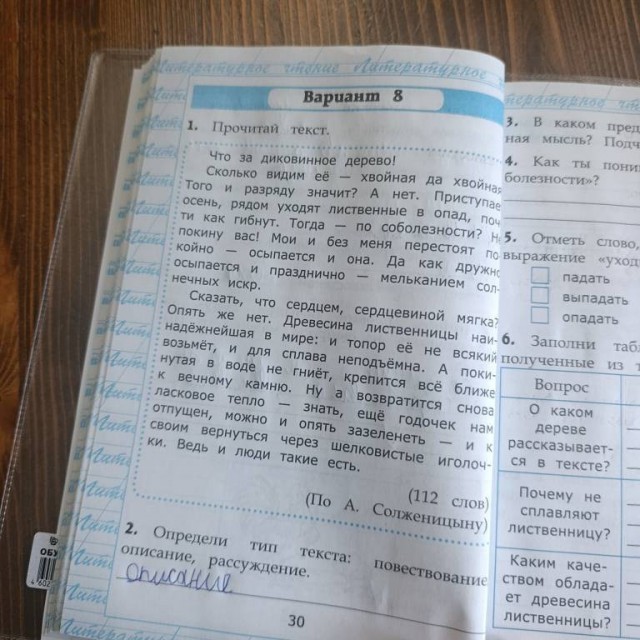 Литературное чтение Литературное
Вариант 8
1. Прочитай текст.
Что за диковинное дерево!
Сколько видим её — хвойная да хвойная
Того и разряду значит? А нет. Приступае
осень, рядом уходят лиственные в опад, поч
ти как гибнут. Тогда — по соболезности? Н
покину вас! Мои и без меня перестоят по
койно — осыпается и она. Да как дружно
осыпается и празднично — мельканием сол-
нечных искр.
Сказать, что сердцем, сердцевиной мягка?
Опять же нет. Древесина лиственницы наи-
надёжнейшая в мире: и топор её не всякий
возьмёт, и для сплава неподъёмна. А поки-
нутая в воде не гниёт, крепится всё ближе
к вечному камню. Ну а возвратится снова
ласковое тепло — знать, ещё годочек нам
отпущен, можно и опять зазеленеть — и к
своим вернуться через шелковистые иголоч-
ки. Ведь и люди такие есть.
(112 слов)
(По А. Солженицыну)
2. Определи тип текста: повествование
описание, рассуждение.
описание
30
тературное
3. В каком пред
ная мысль? Подч
4. Как ты пони
болезности»?
5. Отметь слово,
выражение «уход
падать
выпадать
опадать
6. Заполни таб
полученные из т
Вопрос
О каком
дереве
рассказывает-
ся в тексте?
Почему не
сплавляют
лиственницу?
Каким каче-
ством облада-
ет древесина
лиственницы?